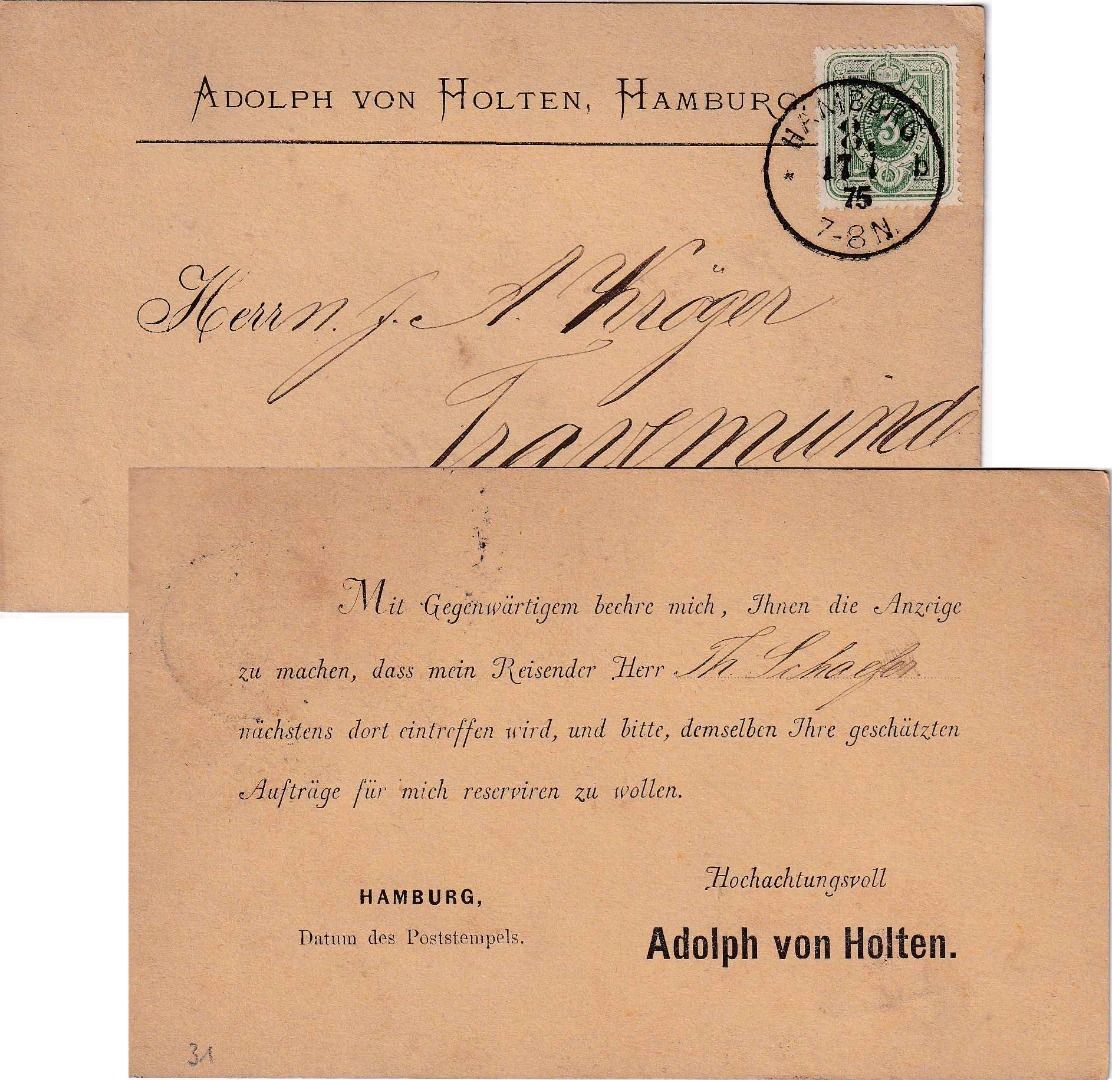 ADOLPH VON HOLTEN, HAMBURG
HAMBURG
2
3
17 1 b
75
7-8 N.
Herrn J. A. Kröger
Travemünde
Mit Gegenwärtigem beehre mich, Ihnen die Anzeige
zu machen, dass mein Reisender Herr Th Schaefer
nächstens dort eintreffen wird, und bitte, demselben Ihre geschätzten
Aufträge für mich reserviren zu wollen.
Hochachtungsvoll
HAMBURG,
Datum des Poststempels.
Adolph von Holten.
31